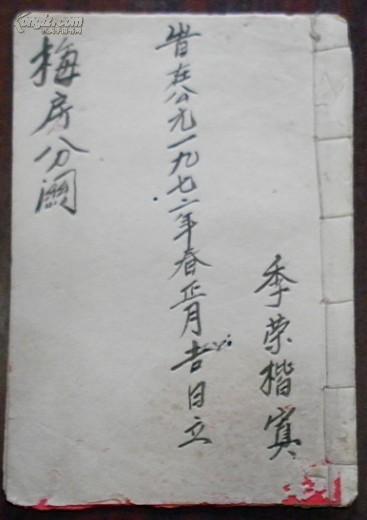 季荣楷寘
皆在公元一九七二年春正月吉日立
梅房分阄
kongfz.com